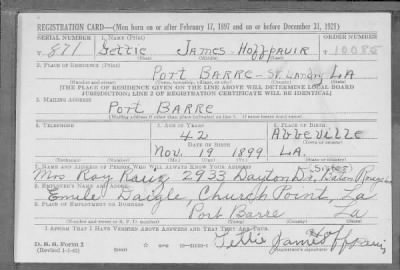 REGISTRATION CARD—(Men born on or after February 17, 1897 and on or before December 31, 1921)
SERIAL NUMBER 1. NAME (Print) ORDER NUMBER
T 871 Gettie James Hoffpauir 10086
(First) (Middle) (Last)
2. PLACE OF RESIDENCE (Print)
Port Barre - St. Landry LA
(Number and street) (Town, township, village, or city) (County) (State)
[THE PLACE OF RESIDENCE GIVEN ON THE LINE ABOVE WILL DETERMINE LOCAL BOARD
JURISDICTION; LINE 2 OF REGISTRATION CERTIFICATE WILL BE IDENTICAL]
3. MAILING ADDRESS
Port Barre
[Mailing address if other than place indicated on line 2. If same insert word same]
4. TELEPHONE 5. AGE IN YEARS 6. PLACE OF BIRTH
42 Abbeville
DATE OF BIRTH (Town or county)
Nov. 19 1899 LA.
(Mo.) (Day) (Yr.) (State or country)
7. NAME AND ADDRESS OF PERSON WHO WILL ALWAYS KNOW YOUR ADDRESS (Sister)
Mrs Roy 2933 Dayton Dr. Baton Rouge
8. EMPLOYER'S NAME AND ADDRESS
Emile Daigle, Church Point, La
9. PLACE OF EMPLOYMENT OR BUSINESS
Port Barre La
(Number and street or R. F. D. number) (Town) (County) (State)
I AFFIRM THAT I HAVE VERIFIED ABOVE ANSWERS AND THAT THEY ARE TRUE.
D. S. S. Form 1
(Revised 1-1-42) GPO
James Hoffpauir
(Registrant's signature)